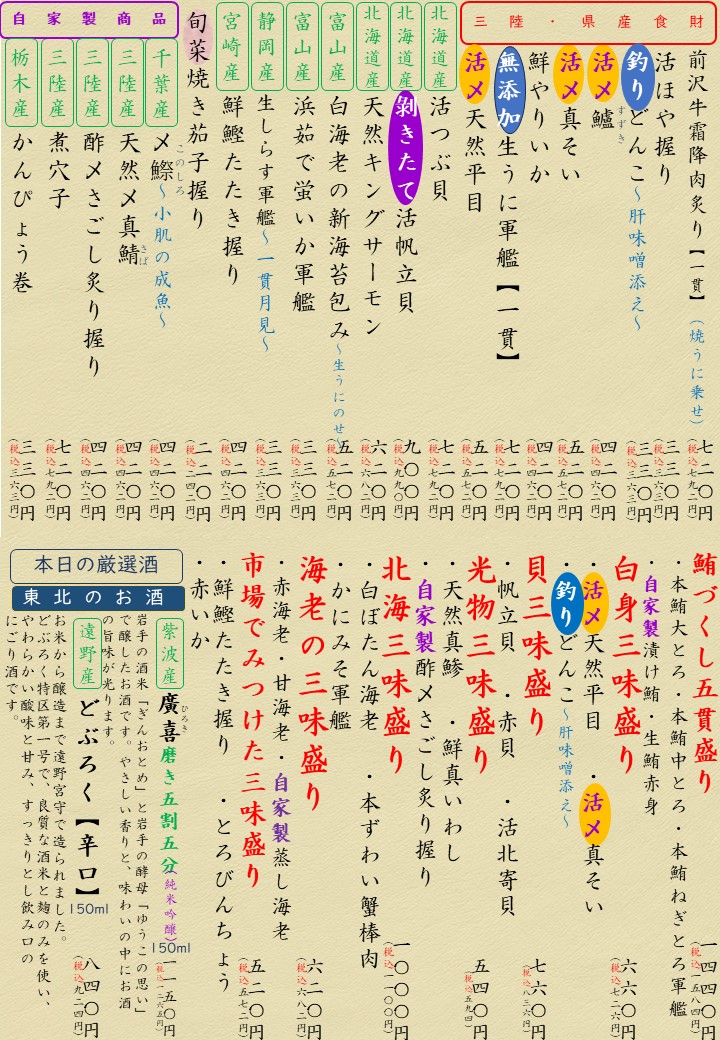 三陸・県産食財
前沢牛霜降肉炙り【一貫】(焼うに乗せ)
七二〇円
(税込七九二円)
活ほや握り
三三〇円
(税込三六三円)
釣りどんこ～肝味噌添え～
三三〇円
(税込三六三円)
活〆鱸
すずき
四二〇円
(税込四六二円)
活〆真そい
五二〇円
(税込五七二円)
鮮やりいか
四二〇円
(税込四六二円)
無添加生うに軍艦【一貫】
七二〇円
(税込七九二円)
活〆天然平目
五二〇円
(税込五七二円)
北海道産
活つぶ貝
七二〇円
(税込七九二円)
北海道産
剝きたて活帆立貝
九〇〇円
(税込九九〇円)
北海道産
天然キングサーモン
六二〇円
(税込六八二円)
富山産
白海老の新海苔包み～生うにのせ～
五二〇円
(税込五七二円)
富山産
浜茹で蛍いか軍艦
三三〇円
(税込三六三円)
静岡産
生しらす軍艦～一貫月見～
三三〇円
(税込三六三円)
宮崎産
鮮鰹たたき握り
四二〇円
(税込四六二円)
旬菜焼き茄子握り
二二〇円
(税込二四二円)
自家製商品
千葉産
〆鰶～小肌の成魚～
このしろ
四二〇円
(税込四六二円)
三陸産
天然〆真鯖
さば
四二〇円
(税込四六二円)
三陸産
酢〆さごし炙り握り
四二〇円
(税込四六二円)
三陸産
煮穴子
七二〇円
(税込七九二円)
栃木産
かんぴょう巻
三三〇円
(税込三六三円)
鮪づくし五貫盛り
・本鮪大とろ・本鮪中とろ・本鮪ねぎとろ軍艦
・自家製漬け鮪・生鮪赤身
一四四〇円
(税込一五八四円)
白身三味盛り
・活〆天然平目・活〆真そい
・釣りどんこ～肝味噌添え～
六六〇円
(税込七二六円)
貝三味盛り
・帆立貝・赤貝・活北寄貝
七六〇円
(税込八三六円)
光物三味盛り
・天然真鯵・鮮真いわし
・自家製酢〆さごし炙り握り
五四〇円
(税込五九四円)
北海三味盛り
・白ぼたん海老・本ずわい蟹棒肉
・かにみそ軍艦
一〇〇〇円
(税込一一〇〇円)
海老の三味盛り
・赤海老・甘海老・自家製蒸し海老
六二〇円
(税込六八二円)
市場でみつけた三味盛り
・鮮鰹たたき握り・とろびんちょう
・赤いか
五二〇円
(税込五七二円)
本日の厳選酒
東北のお酒
紫波産
廣喜磨き五割五分(純米吟醸)
ひろき
150ml
一一五〇円
(税込一二六五円)
岩手の酒米「ぎんおとめ」と岩手の酵母「ゆうこの思い」
で醸したお酒です。やさしい香りと、味わいの中にお酒
の旨味が光ります。
遠野産
どぶろく【辛口】
150ml
八四〇円
(税込九二四円)
お米から醸造まで遠野宮守で造られました。
どぶろく特区第一号で、良質な酒米と麹のみを使い、
やわらかい酸味と甘み、すっきりとし飲み口の
にごり酒です。